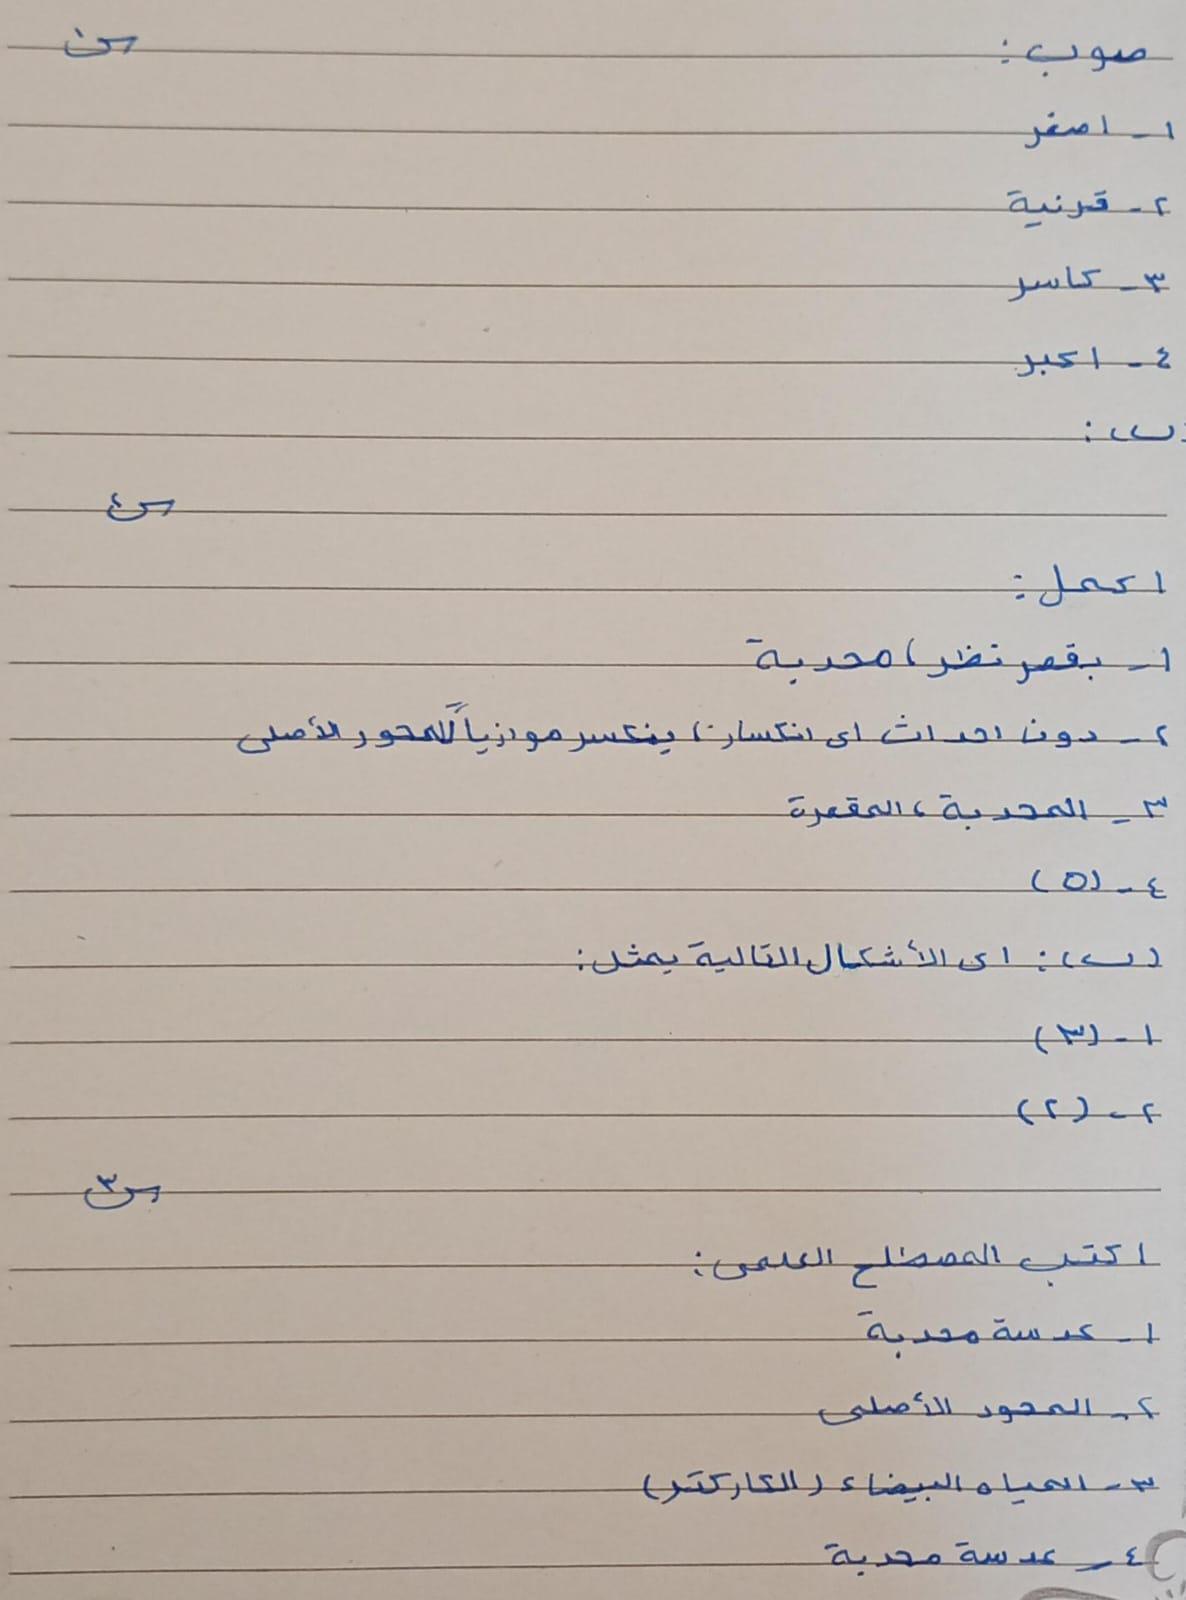 صوب: س٢
١- اصغر
٢- قرنية
٣- كاسر
٤- اكبر
(ب):
س٤
اكمل:
١- بقصر نظر، محدبة
٢- دون احداث اى انكسار، ينكسر موازياً للمحور الأصلى
٣- المحدبة، المقعرة
٤- (٥)
(ب): اى الأشكال التالية يمثل:
١- (٣)
٢- (٢)
س٣
اكتب المصطلح العلمى:
١- عدسة محدبة
٢- المحور الأصلى
٣- المياه البيضاء (الكاركتر)
٤- عدسة محدبة